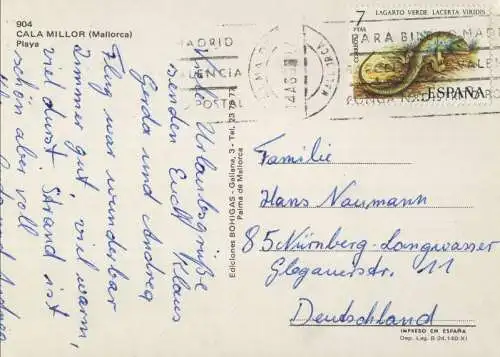 904
CALA MILLOR (Mallorca)
Playa
Viele Urlaubsgrüße
senden Euch Klaus
Gerda und Andrea
Flug war wunderbar
Zimmer gut, viel warm,
viel durst Strand ist
schön aber voll
Ediciones BOHIGAS - Gallana, 3 - Tel. 23 79 77
Palma de Mallorca
MADRID
POSTAL
LAGARTO VERDE LACERTA VIRIDIS
7
PTAS
CORREOS
ESPAÑA
PARA BIEN
Familie
Hans Naumann
85 Nürnberg-Langwasser
Glogauerstr. 11
Deutschland
IMPRESO EN ESPAÑA
Dep. Leg. B (14.140-X)